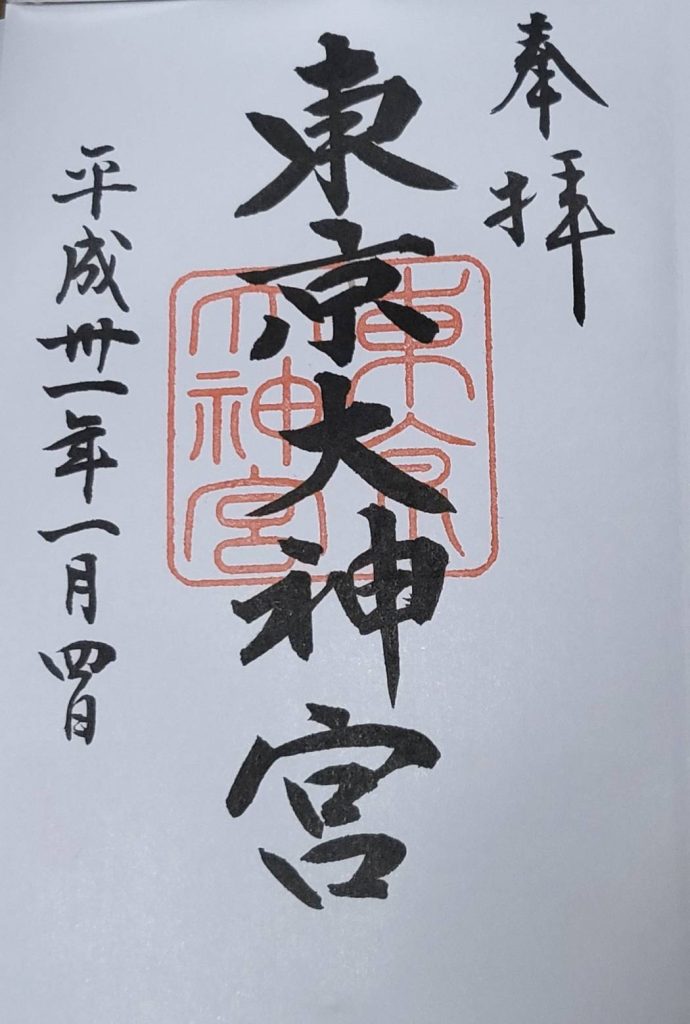 奉拝
東京大神宮
東京
大神宮
平成卅一年一月四日